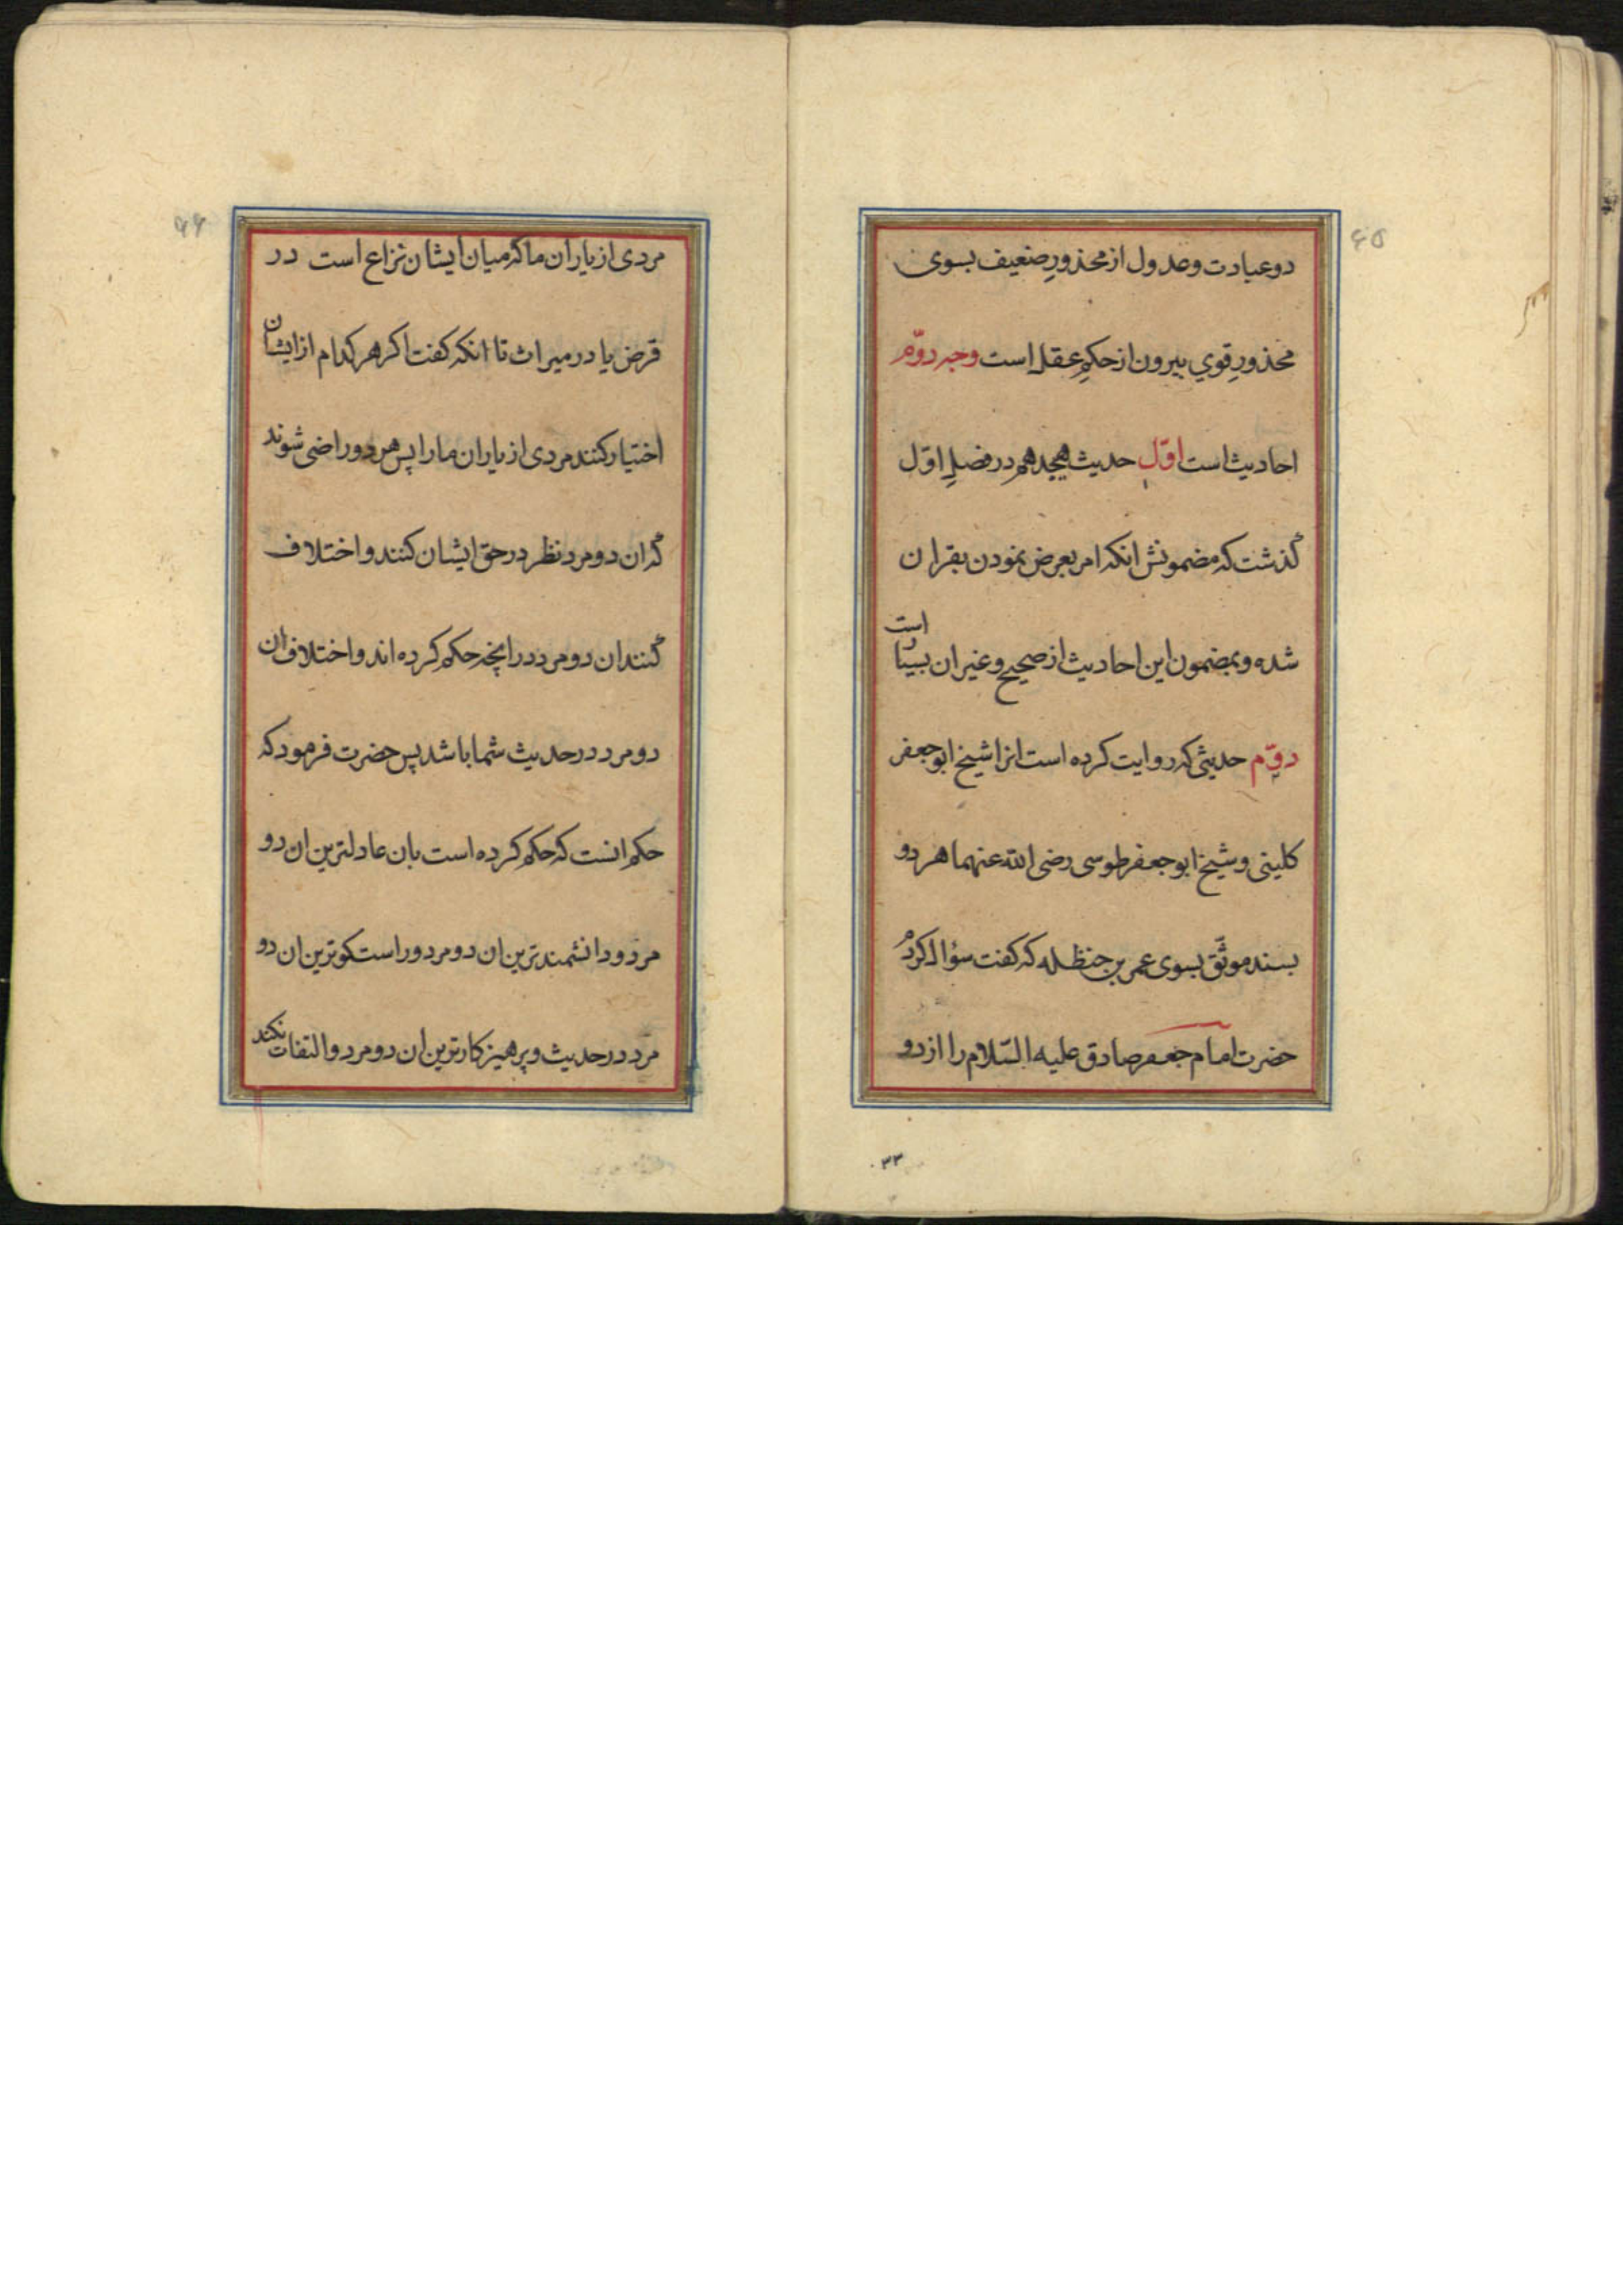 ۶۵
دو عبادت و عدول از محذورِ ضعیف بسوی
محذورِ قوي بیرون از حکمِ عقل است وجه دوّم
احادیث است اوّل حدیث هیجدهم در فصلِ اوّل
گذشت که مضمونش انکه امر بعرض نمودن بقران
شده و بمضمون این احادیث از صحیح و غیر ان بسیار است
دوّم حدیثی که روایت کرده است انرا شیخ ابو جعفر
کلینی و شیخ ابو جعفر طوسی رضی الله عنهما هر دو
بسند موثّق بسوی عمر بن حنظله که کفت سؤال کردم
حضرت امام جعفر صادق علیه السّلام را از دو
۳۳
۶۶
مردی از یاران ما که میان ایشان نزاع است در
قرض یا در میراث تا انکه کفت اکر هر کدام از ایشان
اختیار کنند مردی از یاران ما را پس هر دو راضی شوند
که ان دو مرد نظر در حق ایشان کنند و اختلاف
کنند ان دو مرد در انچه حکم کرده اند و اختلاف ان
دو مرد در حدیث شما باشد پس حضرت فرمود که
حکم انست که حکم کرده است بان عادلترین ان دو
مرد و دانشمندترین ان دو مرد و راستکوترین ان دو
مرد در حدیث و پرهیزکارترین ان دو مرد و التفات نکند